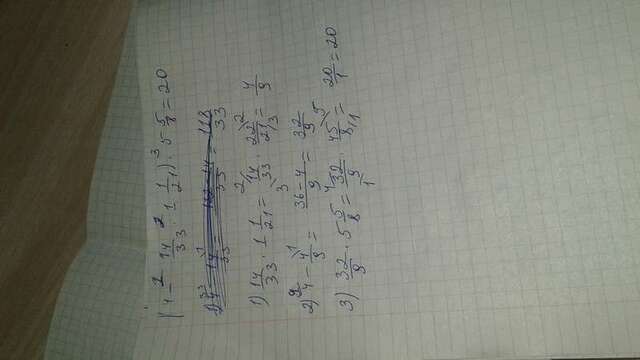 (4 - 14/33 · 1 1/21) · 5 5/8 = 20
1) 4 - 14/33 = 132-14/33 = 118/33
1) 14/33 · 1 1/21 = 14/33 · 22/21 = 4/9
2) 4 - 4/9 = 36-4/9 = 32/9
3) 32/9 · 5 5/8 = 32/9 · 45/8 = 20/1 = 20